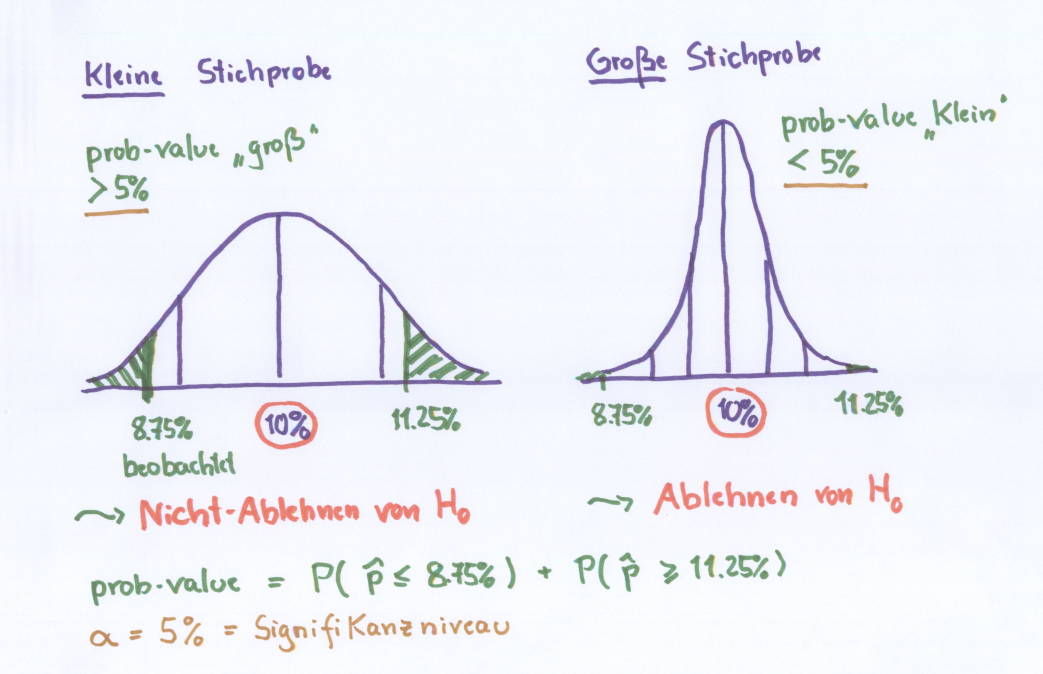 Kleine Stichprobe
prob-value „groß“
> 5%
8.75%
10%
11.25%
beobachtet
⤳ Nicht-Ablehnen von H₀
Große Stichprobe
prob-value „Klein“
< 5%
8.75%
10%
11.25%
⤳ Ablehnen von H₀
prob-value = P( p̂ ≤ 8.75% ) + P( p̂ ≥ 11.25% )
α = 5% = Signifikanzniveau